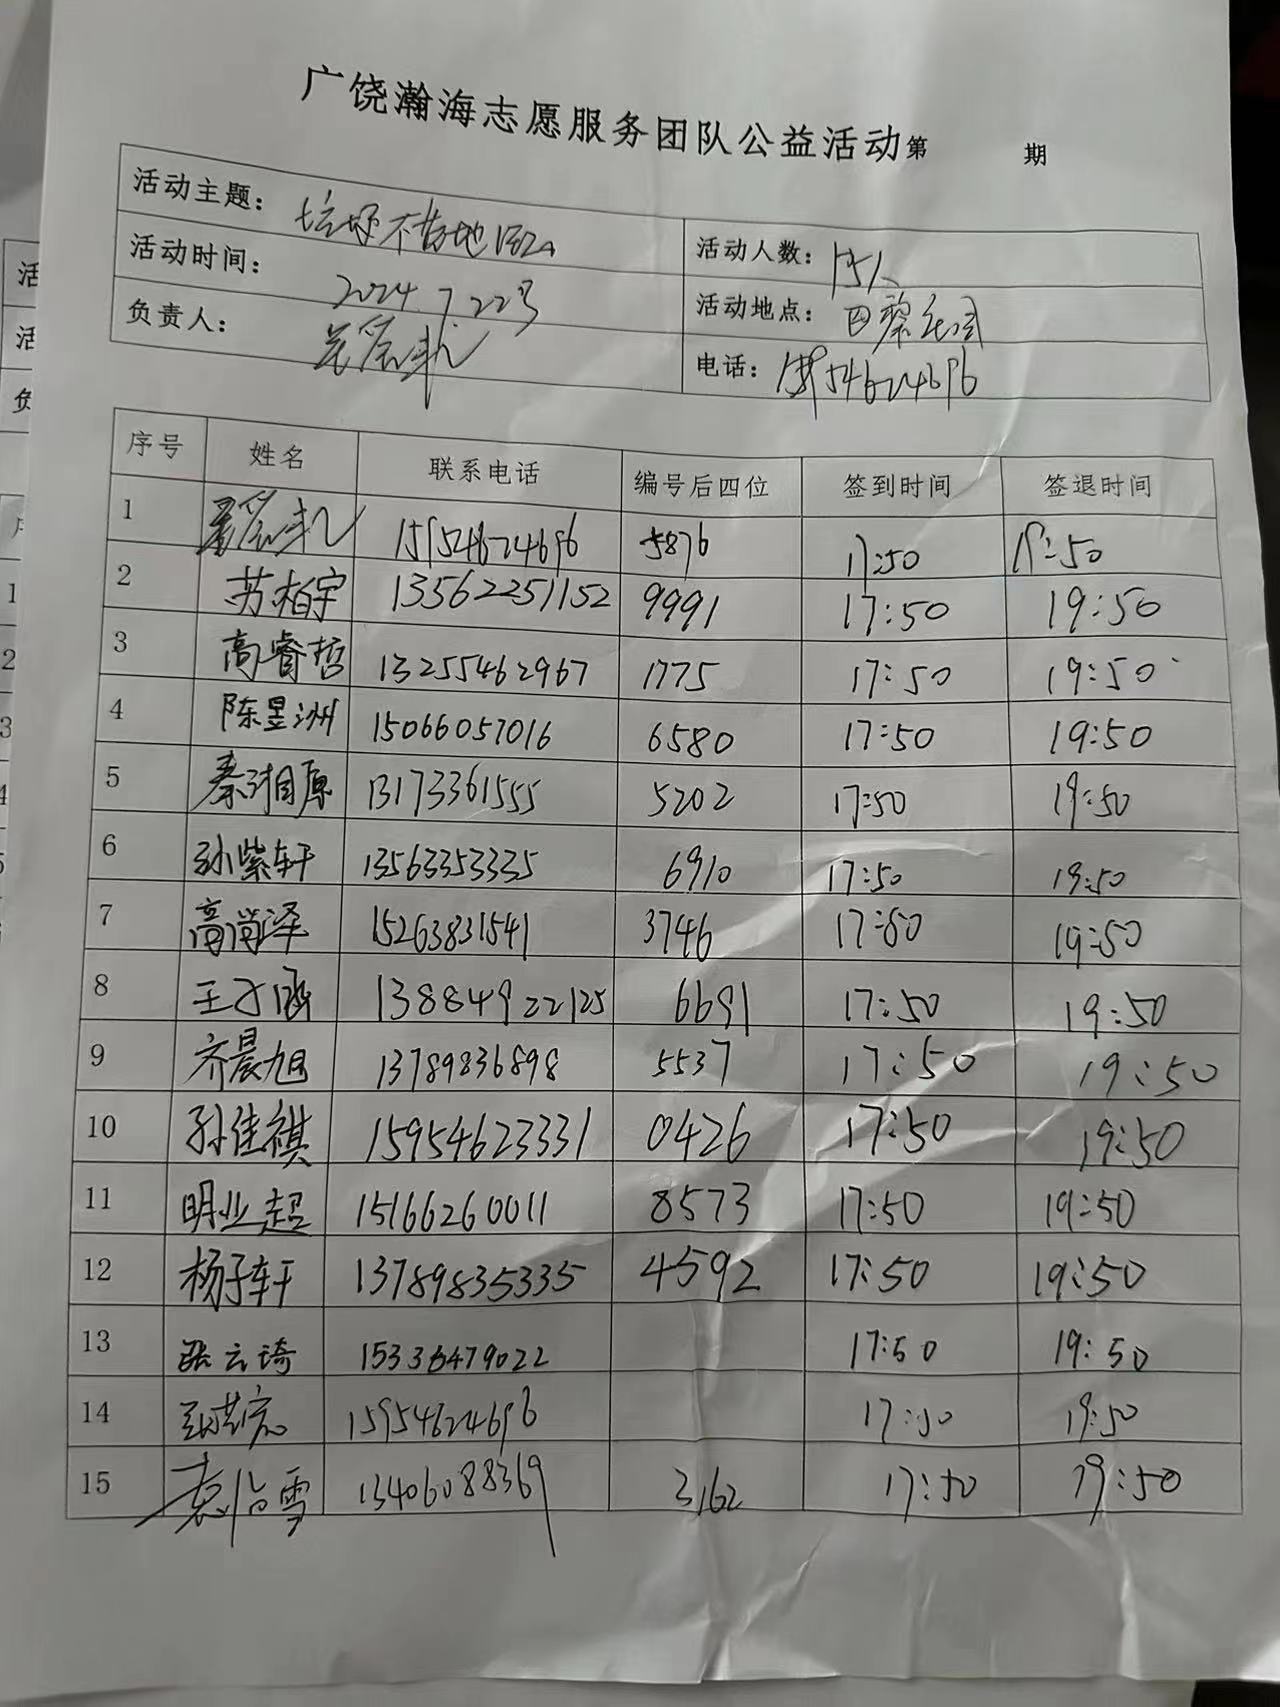 广饶瀚海志愿服务团队公益活动第 期
活动主题： 垃圾不落地 活动人数： 15人
活动时间： 2024.7.22号 活动地点：
负责人： 电话： 15954624696
序号 姓名 联系电话 编号后四位 签到时间 签退时间
1 15954624696 5876 17:50 19:50
2 苏柏宇 13562251152 9991 17:50 19:50
3 高睿哲 13255462967 1775 17:50 19:50
4 陈昱洲 15066057016 6580 17:50 19:50
5 秦湘原 13173361555 5202 17:50 19:50
6 孙紫轩 13563353335 6910 17:50 19:50
7 高尚泽 15263831541 3746 17:50 19:50
8 王子涵 13884922125 6691 17:50 19:50
9 齐晨旭 13789836898 5537 17:50 19:50
10 孙佳祺 15954623331 0426 17:50 19:50
11 明业超 15166260011 8573 17:50 19:50
12 杨子轩 13789835335 4592 17:50 19:50
13 张云琦 15336479022 17:50 19:50
14 15954624696 17:50 19:50
15 袁怡雪 13406088369 3162 17:50 19:50
活
活
负
序
1
2
3
4
5